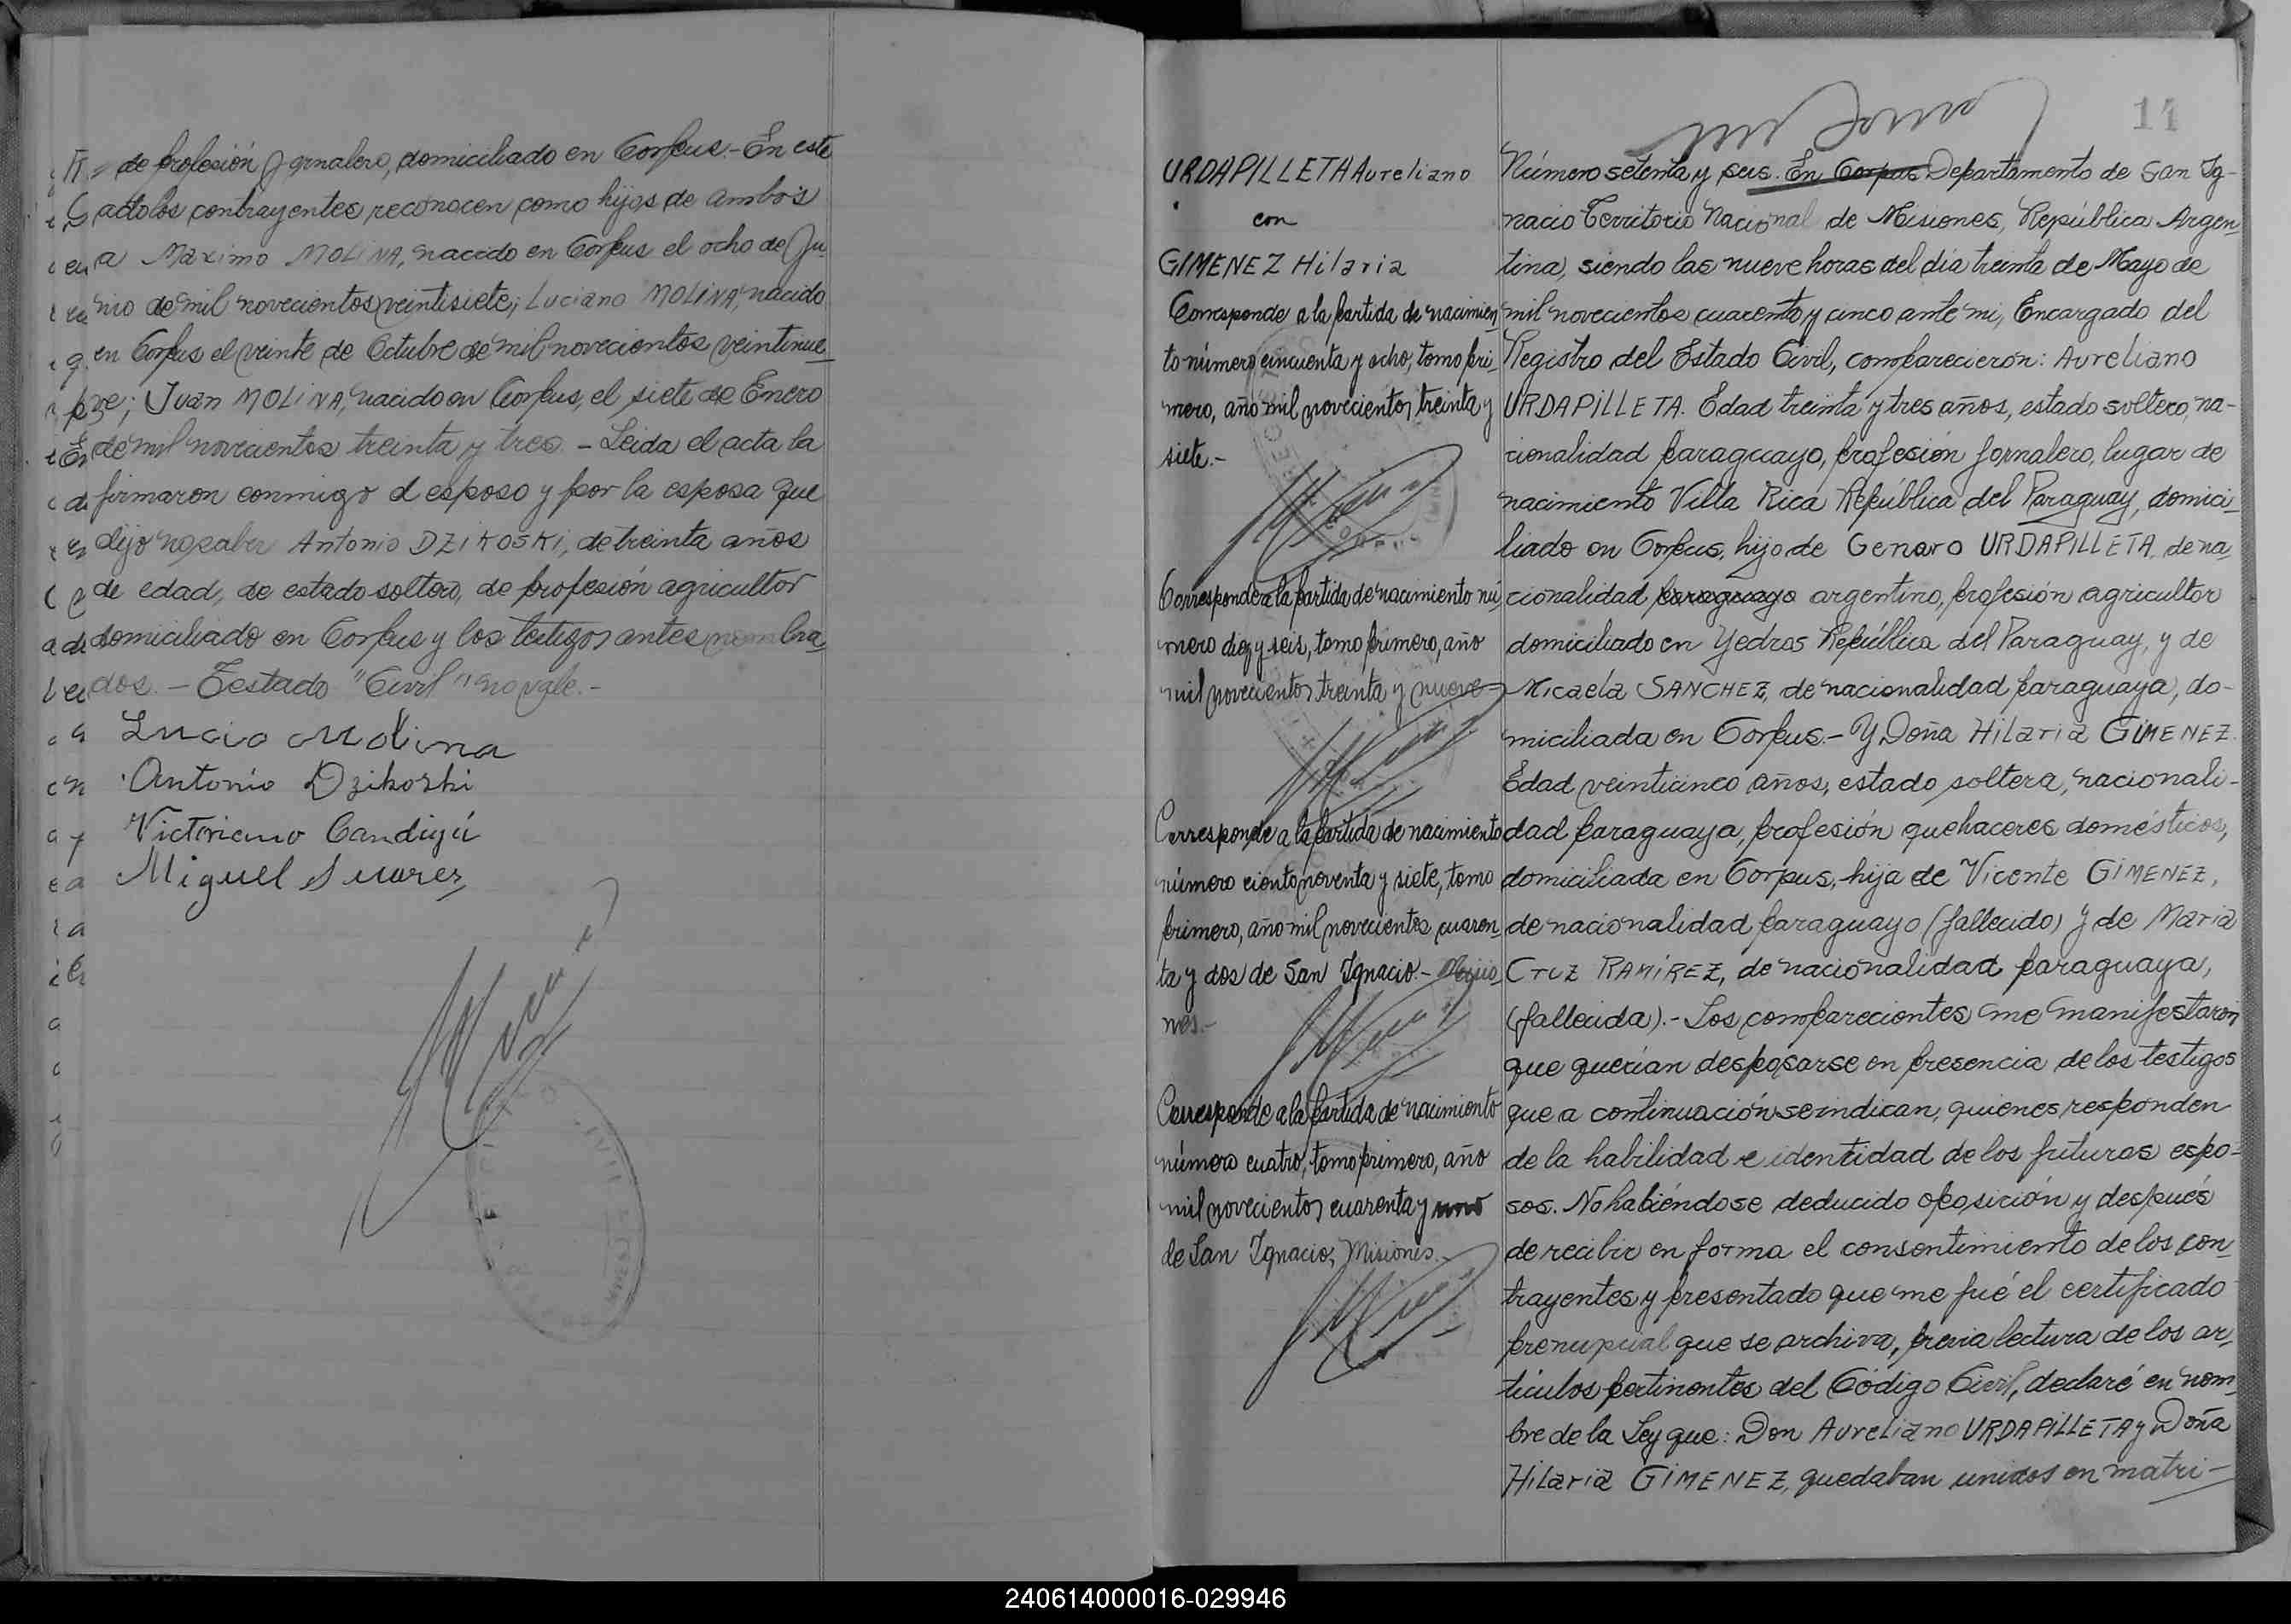 de profesión Jornalero, domiciliado en Corpus.- En este
acto los contrayentes reconocen como hijos de ambos
a Maximo MOLINA, nacido en Corpus el ocho de Ju-
nio de mil novecientos veintisiete; Luciano MOLINA, nacido
en Corpus el veinte de Octubre de mil novecientos veintinue-
ve; Juan MOLINA, nacido en Corpus, el siete de Enero
de mil novecientos treinta y tres. - Leida el acta la
firmaron conmigo el esposo y por la esposa que
dijo no saber Antonio DZIKOSKI, de treinta años
de edad, de estado soltero, de profesión agricultor
domiciliado en Corpus y los testigos antes nombra
dos. - Testado "Civil" no vale.-
Lucio Molina
Antonio Dzikoski
Victoriano Candiyú
Miguel Suarez
14
URDAPILLETA Aureliano
con
GIMENEZ Hilaria
Corresponde a la partida de nacimien
to número cincuenta y ocho, tomo pri-
mero, año mil novecientos treinta y
siete.-
Corresponde a la partida de nacimiento nú-
mero diez y seis, tomo primero, año
mil novecientos treinta y nueve-
Corresponde a la partida de nacimiento
número ciento noventa y siete, tomo
primero, año mil novecientos cuaren-
ta y dos de San Ignacio.- Misio-
nes.-
Corresponde a la partida de nacimiento
número cuatro, tomo primero, año
mil novecientos cuarenta y uno
de San Ignacio, Misiones.-
Número setenta y seis. En Corpus Departamento de San Ig-
nacio Territorio Nacional de Misiones, República Argen-
tina, siendo las nueve horas del día treinta de Mayo de
mil novecientos cuarenta y cinco ante mi, Encargado del
Registro del Estado Civil, comparecieron: Aureliano
URDAPILLETA. Edad treinta y tres años, estado soltero, na-
cionalidad paraguayo, profesión jornalero, lugar de
nacimiento Villa Rica República del Paraguay, domici-
liado en Corpus, hijo de Genaro URDAPILLETA, de na-
cionalidad paraguayo argentino, profesión agricultor
domiciliado en Yedros República del Paraguay, y de
Micaela SANCHEZ, de nacionalidad paraguaya, do-
miciliada en Corpus.- Y Doña Hilaria GIMENEZ.
Edad veinticinco años, estado soltera, nacionali-
dad paraguaya, profesión quehaceres domésticos,
domiciliada en Corpus, hija de Vicente GIMENEZ,
de nacionalidad paraguayo (fallecido) y de Maria
Cruz RAMIREZ, de nacionalidad paraguaya,
(fallecida).- Los comparecientes me manifestaron
que querían desposarse en presencia de los testigos
que a continuación se indican, quienes responden
de la habilidad e identidad de los futuros espo-
sos. No habiéndose deducido oposición y después
de recibir en forma el consentimiento de los con-
trayentes y presentado que me fué el certificado
prenupcial que se archiva, previa lectura de los ar-
tículos pertinentes del Código Civil, declaré en nom-
bre de la Ley que: Don Aureliano URDAPILLETA y Doña
Hilaria GIMENEZ, quedaban unidos en matri-
240614000016-029946